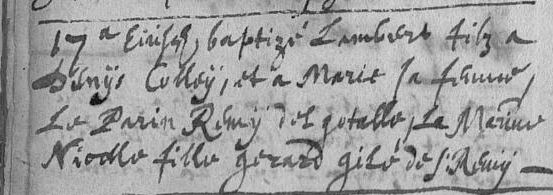 17a Eiusd, baptizé Lambert filz a
Denÿs Colleÿ, et a Marie sa femme,
Le Parin Remÿ del gotalle, La Marine
Nicolle fille gerard gilé de St Remÿ